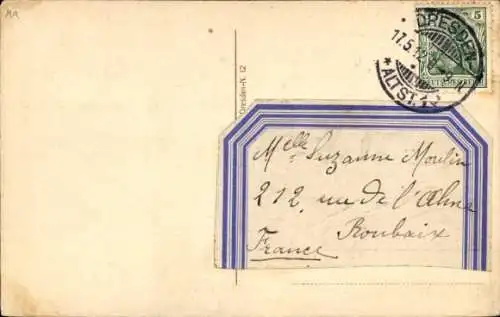 AA
5
DRESDEN
17.5.12
* ALTST.
DEUTSCHES REICH
Dresden-N. 12
Melle Suzanne Moulin
212, rue de l'Alma
Roubaix
France